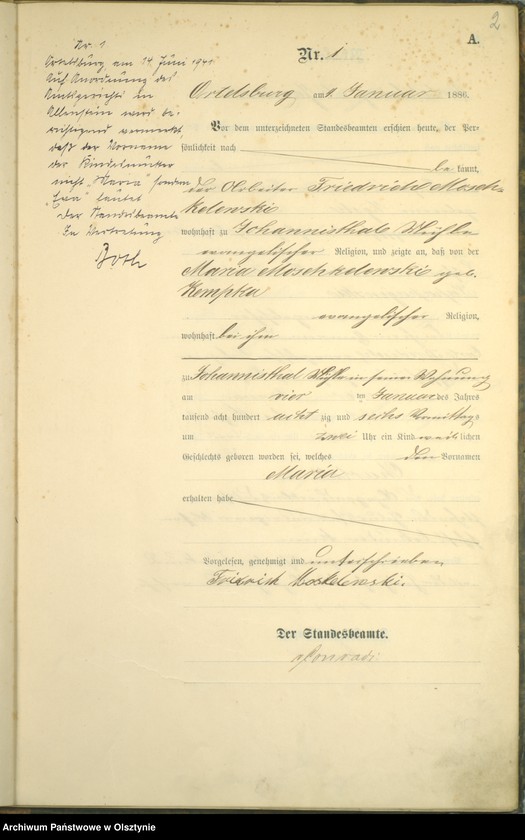 2
A.
Nr. 1
Nr. 1
Ortelsburg am 14 Juni 1941
Auf Anordnung des
Amtsgerichts in
Allenstein wird be-
richtigend vermerkt,
daß der Vorname
der Kindesmutter
nicht "Maria" sondern
"Eva" lautet
Der Standesbeamte
In Vertretung
Ortelsburg am 9. Januar 1886.
Vor dem unterzeichneten Standesbeamten erschien heute, der Per-
sönlichkeit nach
be kannt,
der Arbeiter Friedrich Mosch-
kelewski
wohnhaft zu Johannisthal
evangelischer Religion, und zeigte an, daß von der
Maria Moschkelewski geb.
Kempka
evangelischer Religion,
wohnhaft bei ihm
zu Johannisthal in seiner Wohnung
am vier ten Januar des Jahres
tausend acht hundert acht zig und sechs Vormittags
um zwei Uhr ein Kind weiblichen
Geschlechts geboren worden sei, welches den Vornamen
Maria
erhalten habe
Vorgelesen, genehmigt und unterschrieben
Fridrich Moskelewski.
Der Standesbeamte.
Archiwum Państwowe w Olsztynie